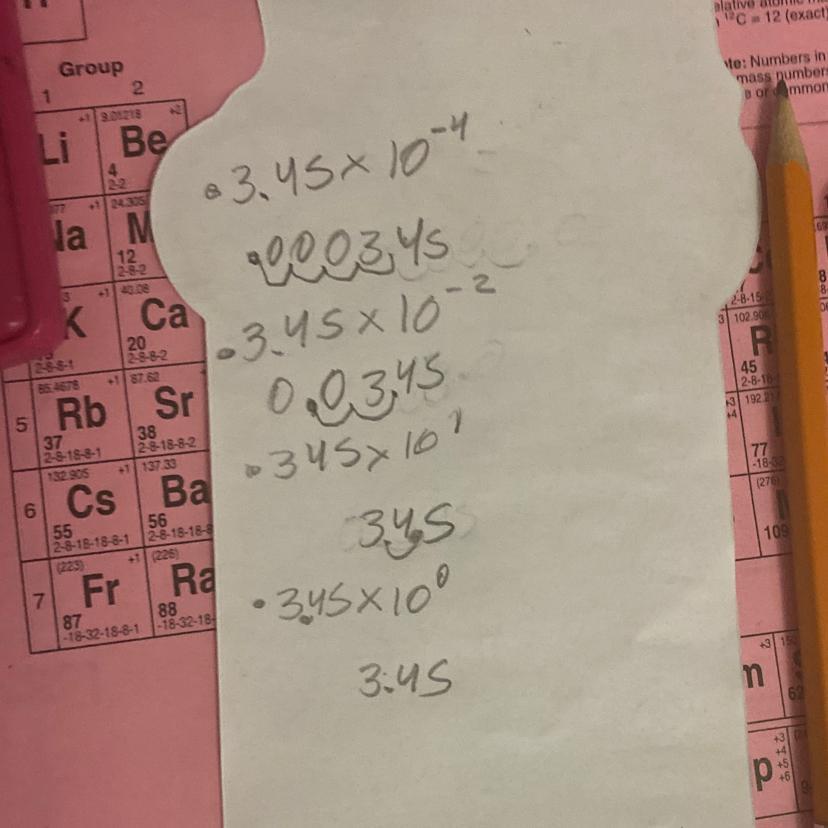 elative atomic
Group
¹²C = 12 (exact)
1 2
te: Numbers in
mass numbers
or common
+1 9.01218 +2
Li Be
4
2-2
• 3.45 x 10⁻⁴
.000345
+1 24.305
Na M
12
2-8-2
• 3.45 x 10⁻²
+1 40.08
K Ca
20
2-8-8-1 2-8-8-2
0.0345
85.4678 +1 87.62
5 Rb Sr
37 38
2-8-18-8-1 2-8-18-8-2
• 345 x 10¹
132.905 +1 137.33
6 Cs Ba
55 56
2-8-18-18-8-1 2-8-18-18-8
34.5
(223) +1 (226)
7 Fr Ra
87 88
-18-32-18-8-1 -18-32-18-
• 3.45 x 10⁰
3.45
2-8-15-2
3 102.906
R
45
2-8-18
+3 192.21
+4
77
-18-
(276)
109
+3
m
62
+3
+4
p +5
+6